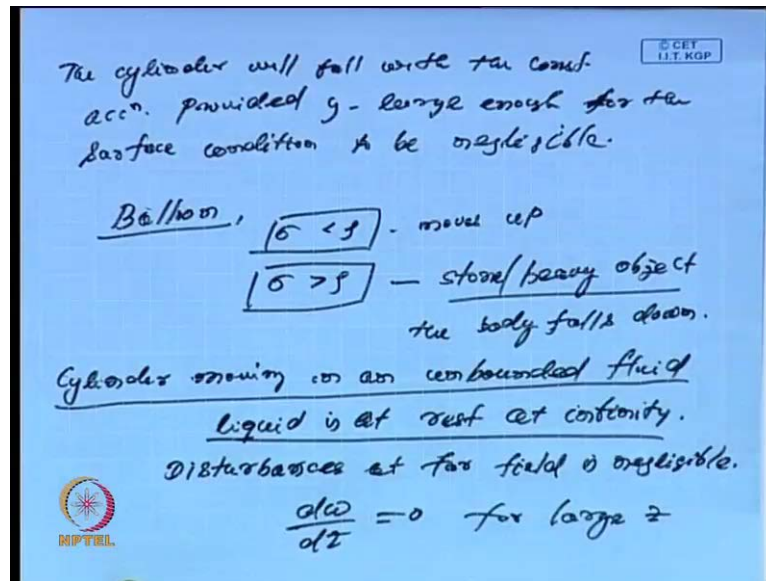 © CET
I.I.T. KGP
The cylinder will fall with the const.
accn. provided y - large enough for the
surface condition to be negligible.
Balloon, σ < ρ - moves up
σ > ρ - stone/heavy object
the body falls down.
Cylinder moving in an unbounded fluid
liquid is at rest at infinity.
Disturbances at far field is negligible.
dω/dz = 0 for large z
NPTEL